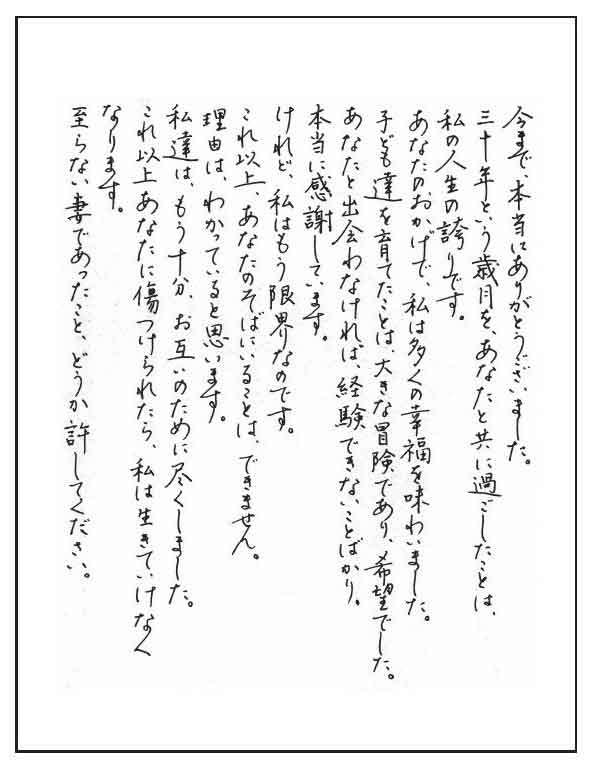 今まで、本当にありがとうございました。
三十年という歳月を、あなたと共に過ごしたことは、
私の人生の誇りです。
あなたのおかげで、私は多くの幸福を味わいました。
子ども達を育てたことは、大きな冒険であり、希望でした。
あなたと出会わなければ、経験できないことばかり。
本当に感謝しています。
けれど、私はもう限界なのです。
これ以上、あなたのそばにいることは、できません。
理由は、わかっていると思います。
私達は、もう十分、お互いのために尽くしました。
これ以上あなたに傷つけられたら、私は生きていけなく
なります。
至らない妻であったこと、どうか許してください。